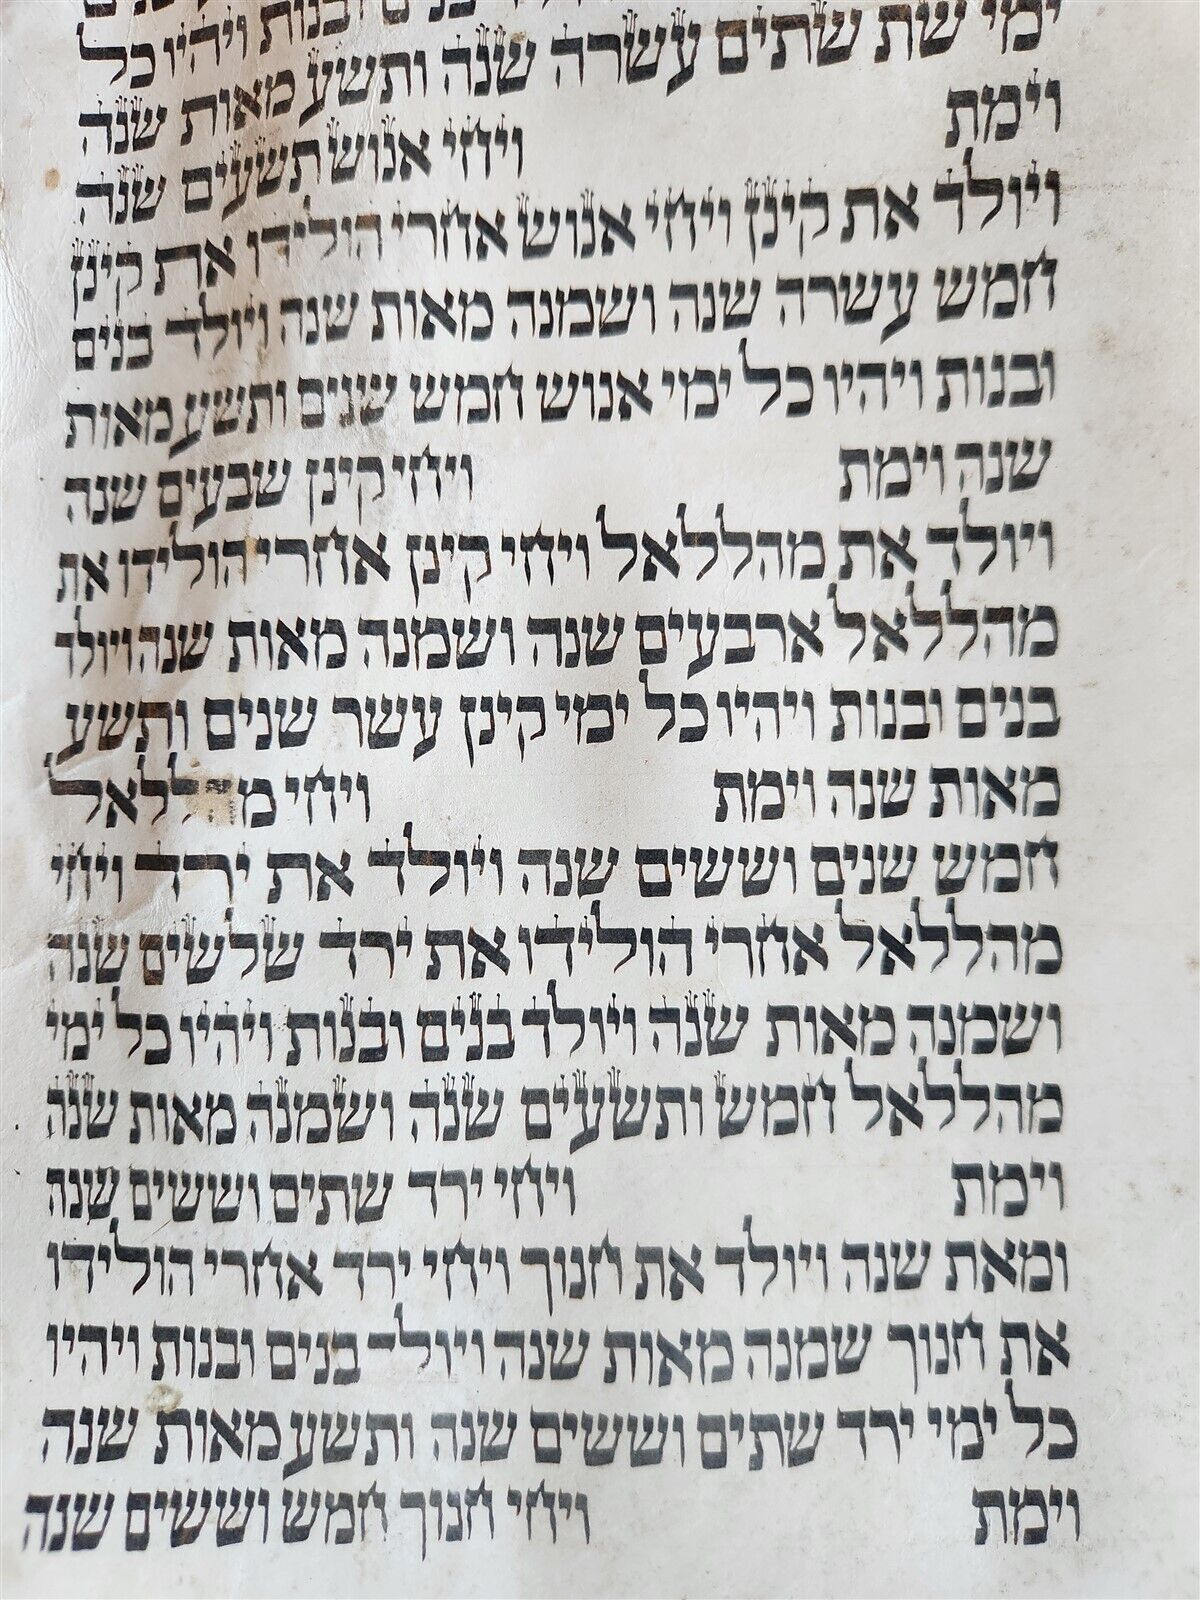 בנים ובנות ויהיו כל
ימי שת שתים עשרה שנה ותשע מאות שנה
וימת ויחי אנוש תשעים שנה
ויולד את קינן ויחי אנוש אחרי הולידו את קינן
חמש עשרה שנה ושמנה מאות שנה ויולד בנים
ובנות ויהיו כל ימי אנוש חמש שנים ותשע מאות
שנה וימת ויחי קינן שבעים שנה
ויולד את מהללאל ויחי קינן אחרי הולידו את
מהללאל ארבעים שנה ושמנה מאות שנה ויולד
בנים ובנות ויהיו כל ימי קינן עשר שנים ותשע
מאות שנה וימת ויחי מהללאל
חמש שנים וששים שנה ויולד את ירד ויחי
מהללאל אחרי הולידו את ירד שלשים שנה
ושמנה מאות שנה ויולד בנים ובנות ויהיו כל ימי
מהללאל חמש ותשעים שנה ושמנה מאות שנה
וימת ויחי ירד שתים וששים שנה
ומאת שנה ויולד את חנוך ויחי ירד אחרי הולידו
את חנוך שמנה מאות שנה ויולד בנים ובנות ויהיו
כל ימי ירד שתים וששים שנה ותשע מאות שנה
וימת ויחי חנוך חמש וששים שנה